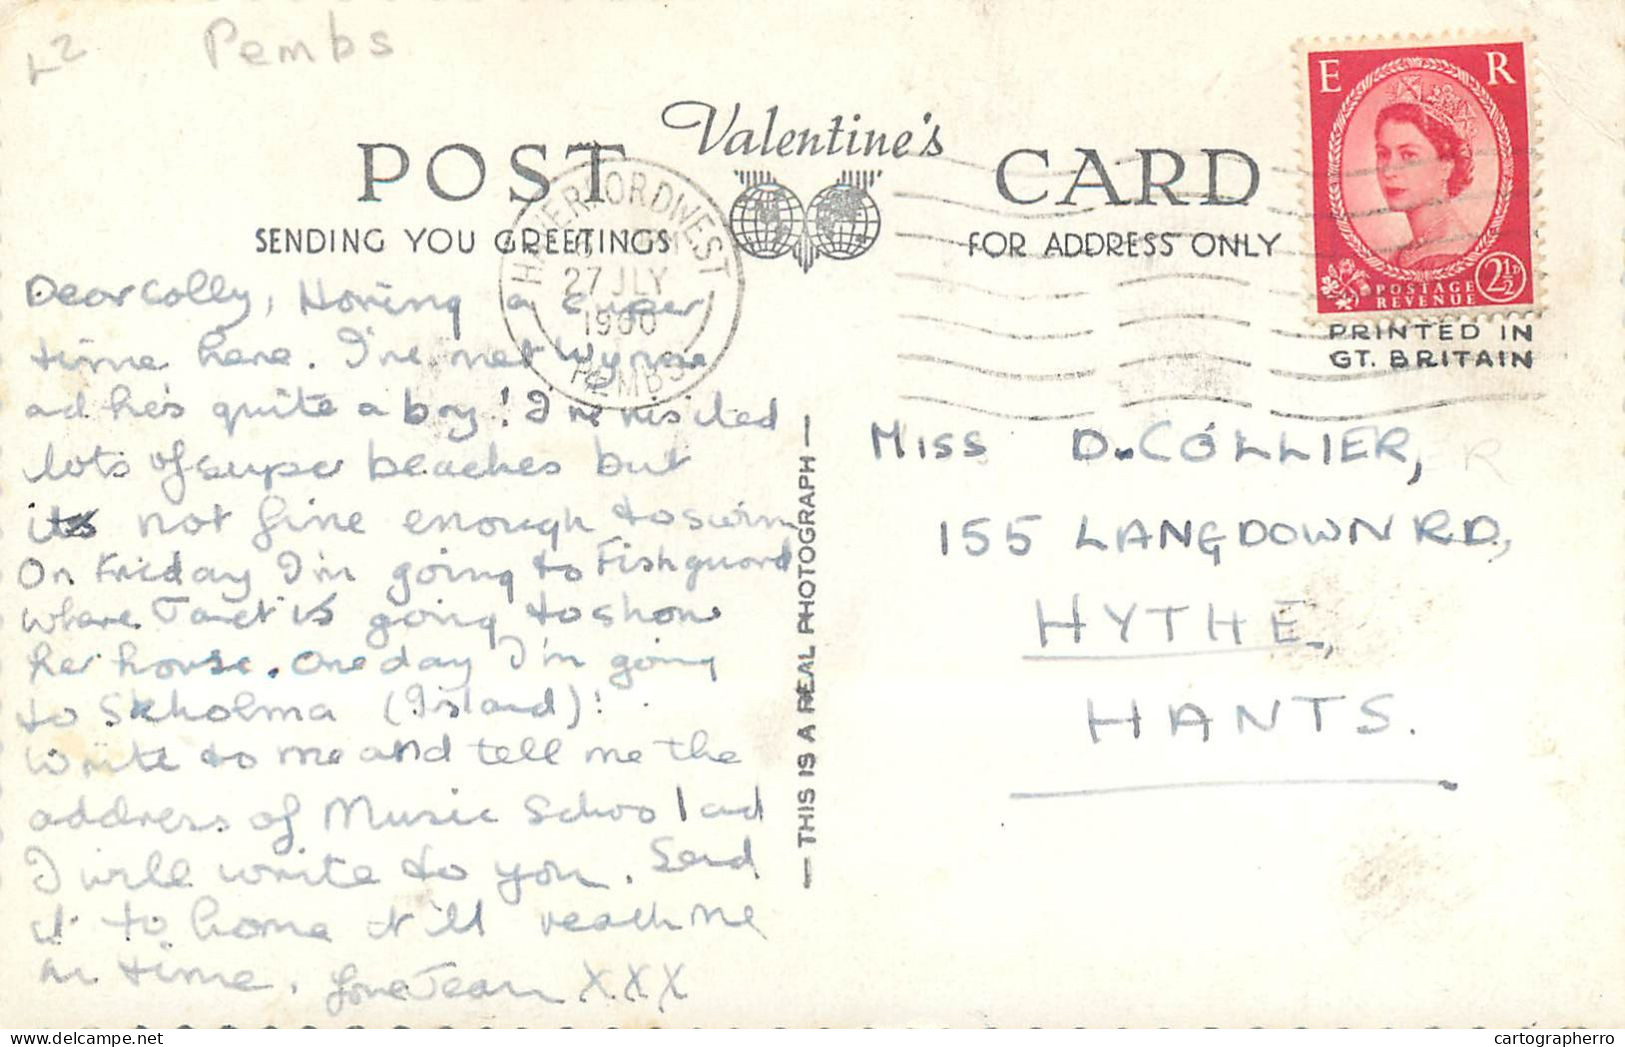 L2
Pembs
Valentine's
POST CARD
SENDING YOU GREETINGS
FOR ADDRESS ONLY
HAVERFORDWEST
27 JLY
1960
PEMBS
E R
POSTAGE
REVENUE
2½D
PRINTED IN
GT. BRITAIN
Dear Colly, Having a super
time here. I've met Wynne
ad he's quite a boy! I've visited
lots of super beaches but
its not fine enough to swim
On Friday I'm going to Fishguard
where Janet is going to show
her house. One day I'm going
to Skholma (Island)!
Write to me and tell me the
address of Music School and
I will write to you. Send
it to home it'll reach me
in time. love Jean XXX
— THIS IS A REAL PHOTOGRAPH —
Miss D. COLLIER,
155 LANGDOWN RD,
HYTHE,
HANTS.
cartographerro